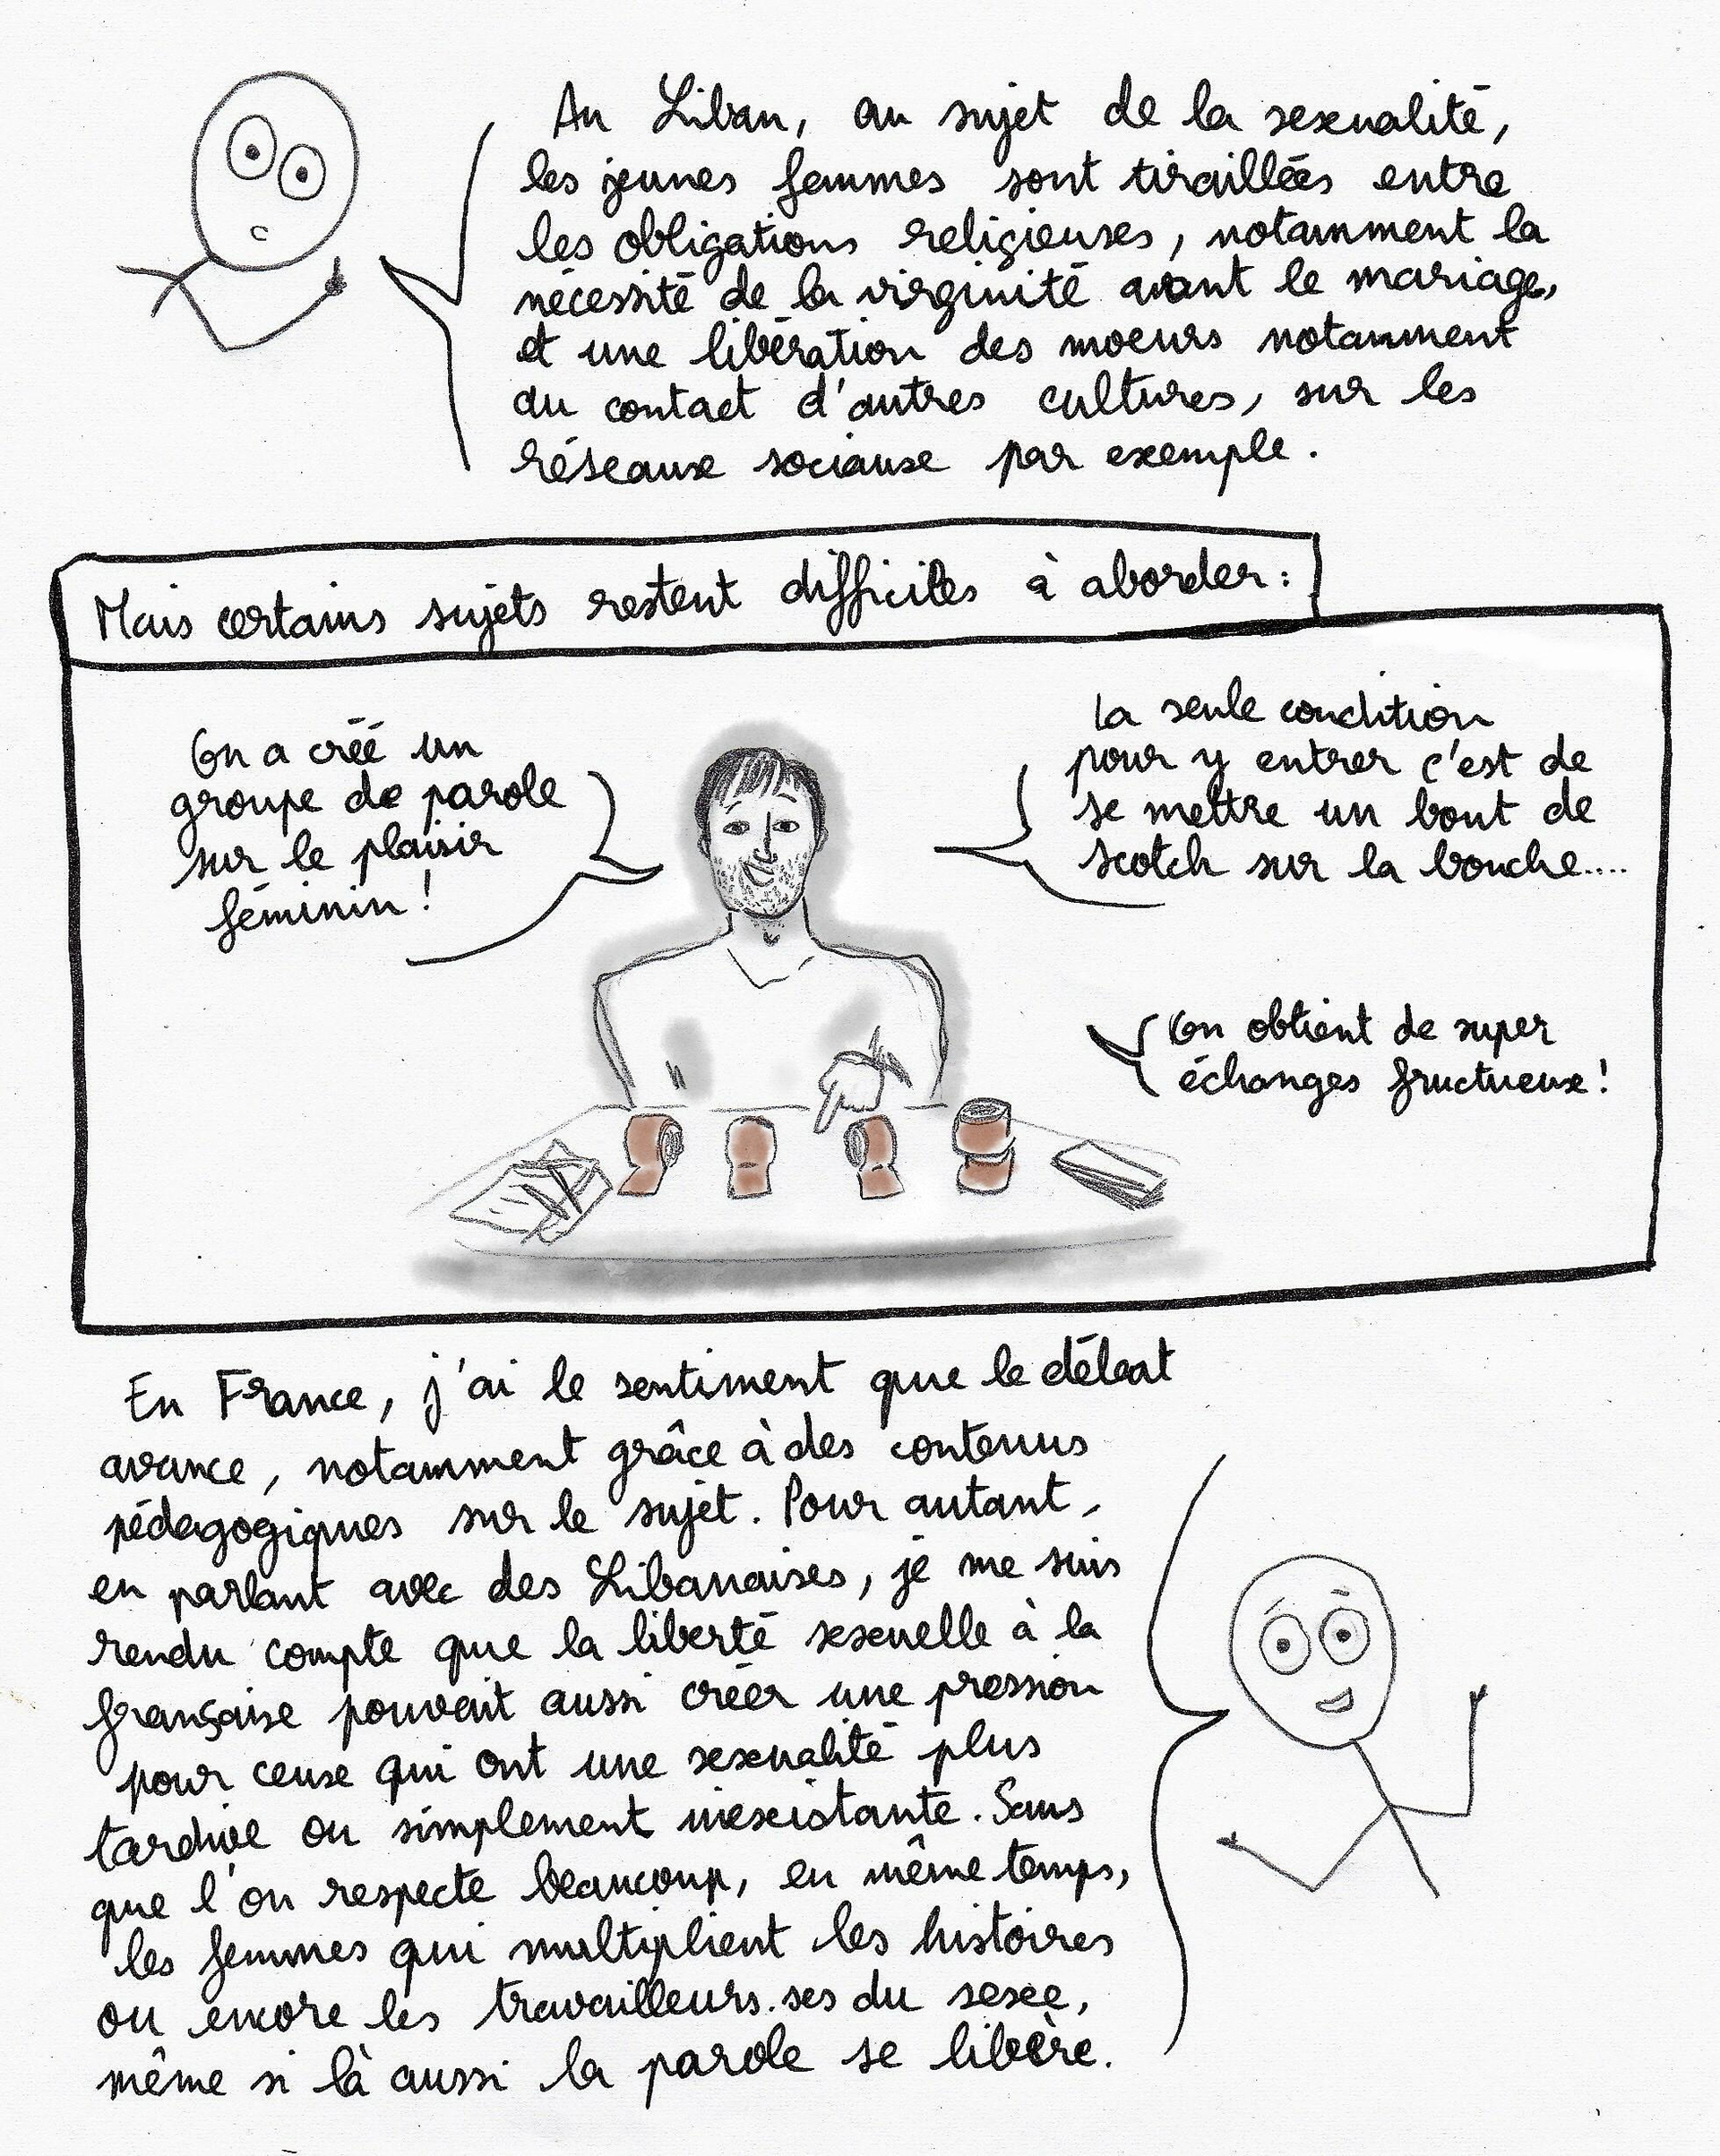 Au Liban, au sujet de la sexualité,
les jeunes femmes sont tiraillées entre
les obligations religieuses, notamment la
nécessité de la virginité avant le mariage,
et une libération des moeurs notamment
au contact d'autres cultures, sur les
réseaux sociaux par exemple.
Mais certains sujets restent difficiles à aborder :
On a créé un
groupe de parole
sur le plaisir
féminin !
La seule condition
pour y entrer c'est de
se mettre un bout de
scotch sur la bouche....
On obtient de super
échanges fructueux !
En France, j'ai le sentiment que le débat
avance, notamment grâce à des contenus
pédagogiques sur le sujet. Pour autant,
en parlant avec des Libanaises, je me suis
rendu compte que la liberté sexuelle à la
française pouvait aussi créer une pression
pour ceux qui ont une sexualité plus
tardive ou simplement inexistante. Sans
que l'on respecte beaucoup, en même temps,
les femmes qui multiplient les histoires
ou encore les travailleurs.ses du sexe,
même si là aussi la parole se libère.